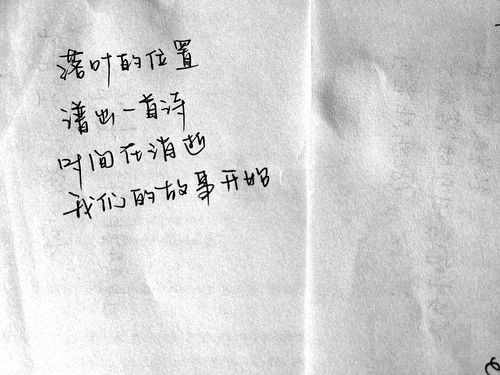 落叶的位置
谱出一首诗
时间在消逝
我们的故事开始